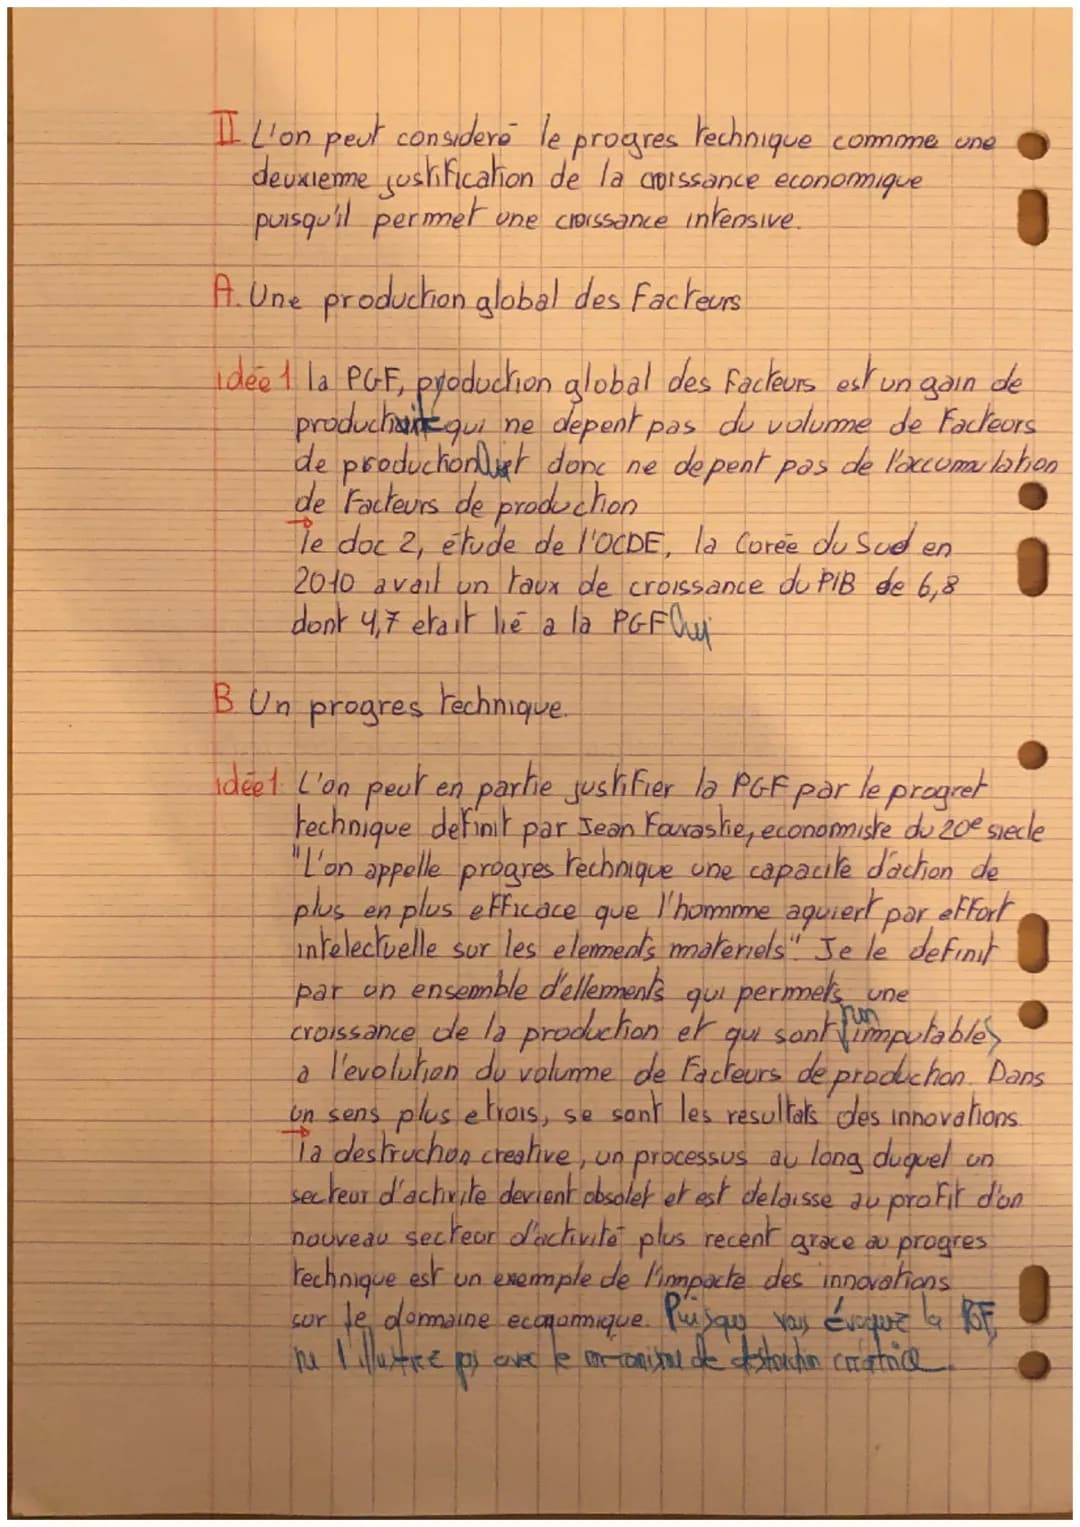 II L'on peut considéré le progres technique commme une
deuxiemme justification de la croissance economique
puisqu'il permet une croissance intensive.
A. Une production global des Facteurs
idée 1 la PGF, production global des Facteurs est un gain de
productivité qui ne depent pas du volume de Facteurs
de production Oui et donc ne depent pas de l'accumulation
de Facteurs de production
→
le doc 2, étude de l'OCDE, la Corée du Sud en
2010 avait un taux de croissance du PIB de 6,8
dont 4,7 etait lié a la PGF Oui
B Un progres technique.
idée 1: L'on peut en partie justifier la PGF par le progret
technique definit par Jean Fourastie, economiste du 20e siecle
"L'on appelle progres technique une capacite d'action de
plus en plus efficace que l'hommme aquiert par effort
intelectuelle sur les elements materiels". Je le definit
par un ensemble d'ellements qui permets une
croissance de la production et qui sont imputables
a l'evolution du volume de Facteurs de production. Dans
un sens plus etrois, se sont les resultats des innovations.
→
la destruction creative, un processus au long duquel un
secteur d'activite devient obsolet et est delaisse au profit d'un
nouveau secteur d'activité plus recent grace au progres
technique est un exemple de l'impacte des innovations
sur le domaine economique. Puisque vous évoquez la PGF,
l'illustrez pas avec le de destruction créatrice.